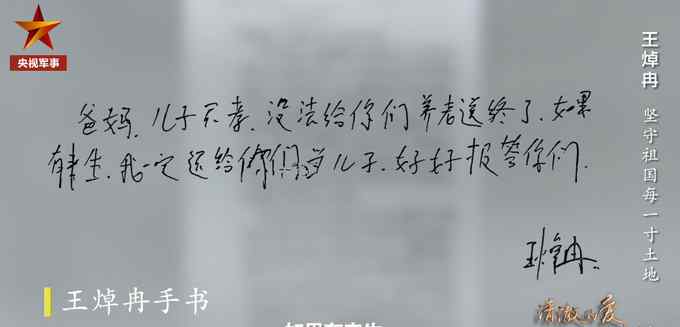 央视军事
爸妈,儿子不孝,没法给你们养老送终了。如果
有来生,我一定还给你们当儿子,好好报答你们。
王焯冉
王焯冉手书
王焯冉 坚守祖国每一寸土地
清澈的爱